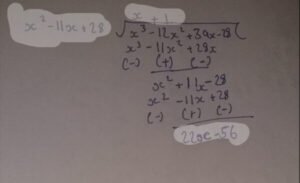 x + 1
x² - 11x + 28 √ x³ - 12x² + 39x - 28 (
x³ - 11x² + 28x
(-) (+) (-)
x² + 11x - 28
x² - 11x + 28
(-) (+) (-)
22x - 56